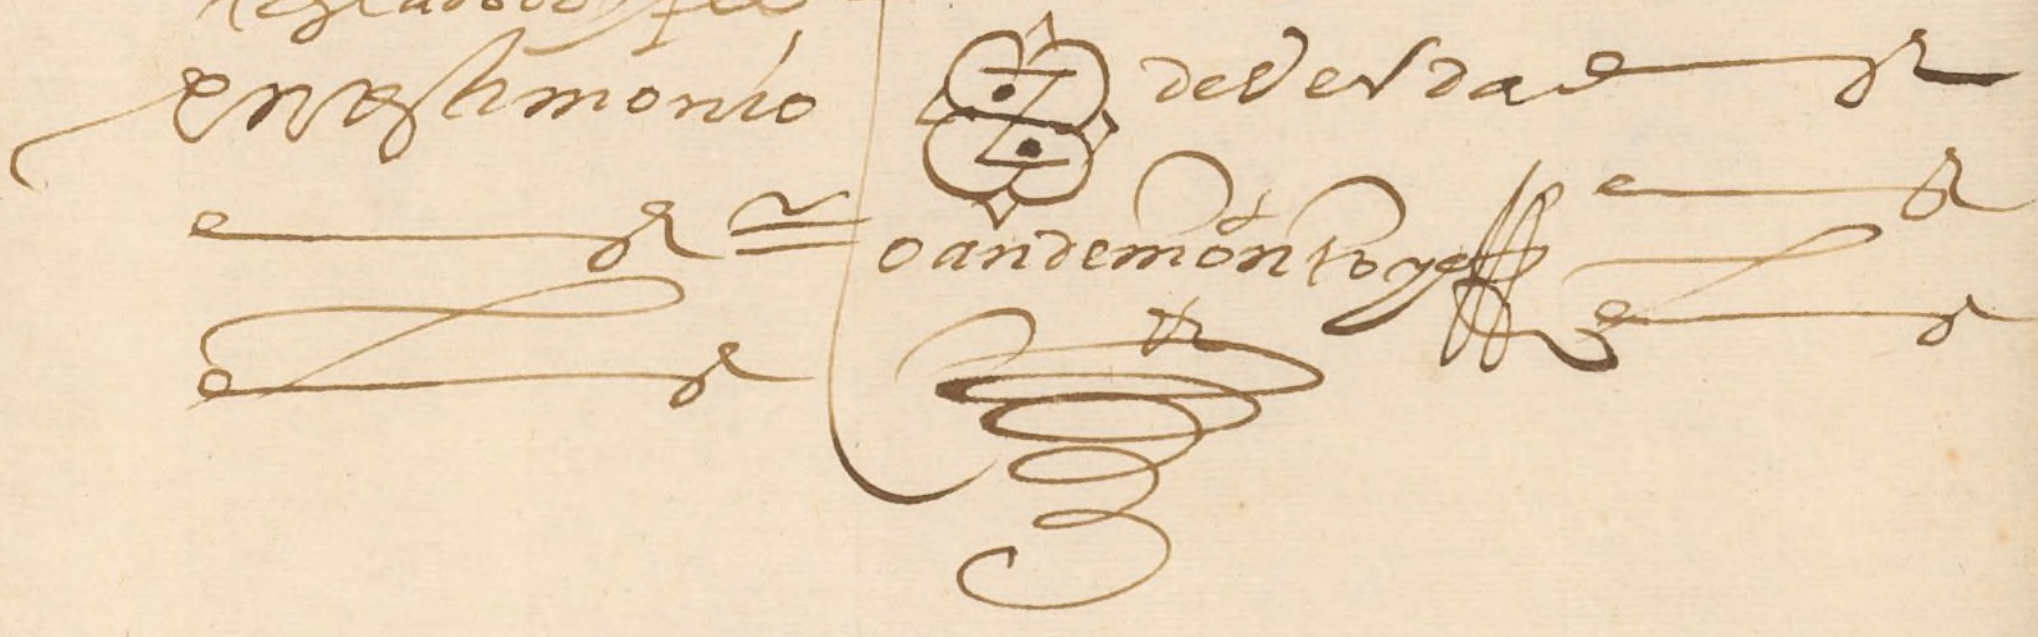 en testimonio de verdad
Joan de montoya